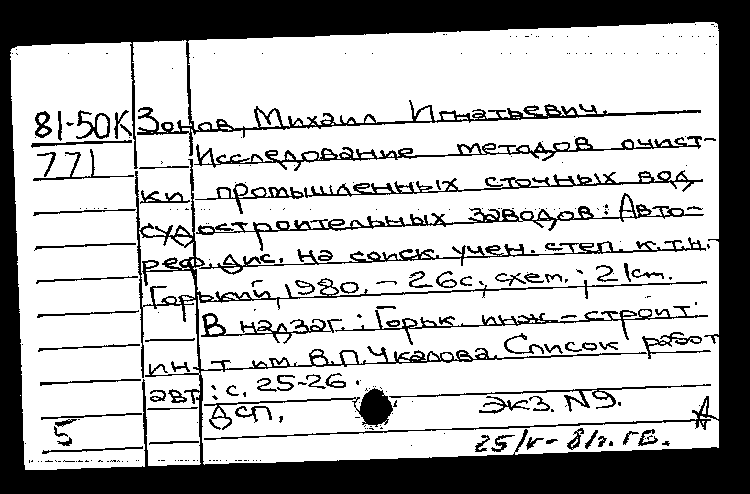 81-50К Зонов, Михаил Игнатьевич.
771 Исследование методов очист-
ки промышленных сточных вод
судостроительных заводов: Авто-
реф. дис. на соиск. учен. степ. к.т.н.-
Горький, 1980. - 26с., схем.; 21см.
В надзаг.: Горьк. инж-строит.
ин-т им. В.П.Чкалова. Список работ
авт: с. 25-26.
ДСП. Экз. №9.
5 25/V- 81г.